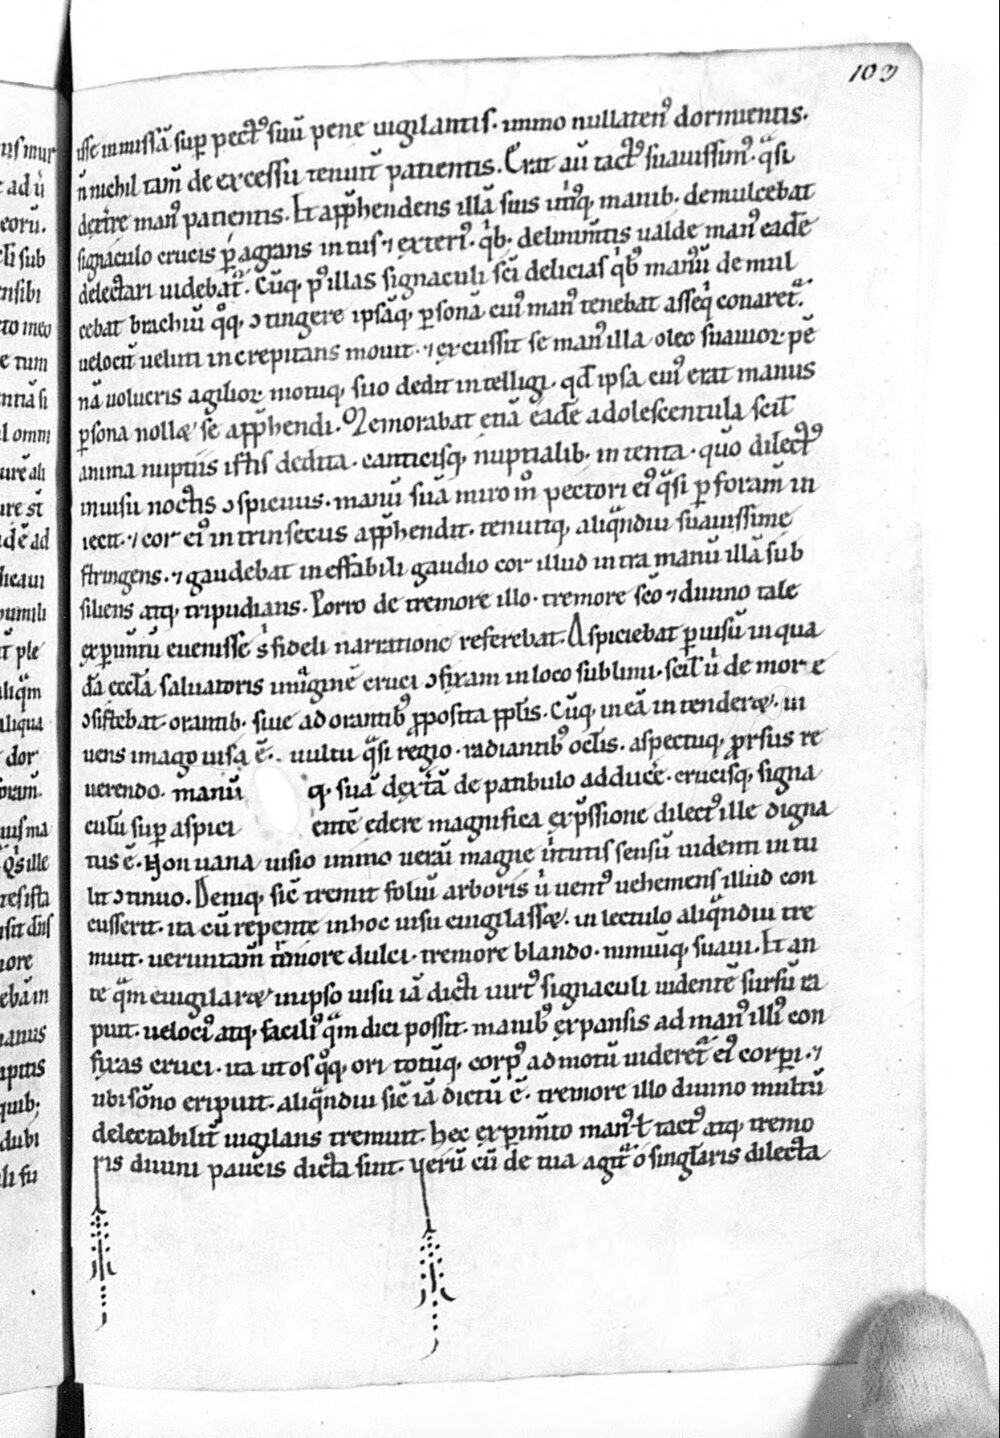 103
isse inmissā sup pectꝰ suū pene uigilantis. immo nullatenꝰ dormientis.
ñ nichil tam̄ de excessu tenuit̄ patientis. Erat aū tactꝰ suauissimꝰ. q̄si
dext̄re manꝰ patientis. Et app̄hendens illā suis ut̓q; manib. demulcebat
signaculo crucis ꝑagrans intus ⁊ exteriꝰ. q̓b. delinim̄tis ualde manꝰ eadē
delectari uidebat̄. Cūq; pꝰ illas signaculi sc̄i delicias q̓bꝰ manū demul
cebat brachiū q̊q; ↄtingere ipsāq; ꝑsonā cuiꝰ manꝰ tenebat asseq̓ conaret̄.
uelociū ueluti increpitans mouit. ⁊ excussit se manꝰ illa oleo suauior. pē
nā uolucris agilior. motuq; suo dedit intelligi. qd̄ ipsa cuiꝰ erat manus
ꝑsona nollæ se app̄hendi. Memorabat etiā eadē adolescentula scil̄
anima nuptiis istis dedita. canticisq; nuptialib. intenta. quo dilectꝰ
inuisu noctis ↄspicuus. manū suā miro m̊ pectori eiꝰ q̄si ꝑ foram̄ in
iecit. ⁊ cor eiꝰ intrinsecus app̄hendit. tenuitq; aliq̄ndiu suauissime
stringens. ⁊ gaudebat ineffabili gaudio cor illud intra manū illā sub
siliens atq; tripudians. Porro de tremore illo. tremore sc̄o ⁊ diuino tale
exꝑim̄tū euenisse s̓ fideli narratione referebat. Aspiciebat ꝑ uisū in qua
dā eccl̄a saluatoris imaginē cruci ↄfixam in loco sublimi. scil̄ u̓ de more
ↄsistebat. orantib. siue adorantibꝰ p̄posita pp̄lis. Cūq; in eā intenderæ. ui
uens imago uisa ē. uultu q̄si regio. radiantibꝰ oclis. aspectuq; prorsus re
uerendo. manū q; suā dext̄ā de patibulo adducē. crucisq; signa
culū sup aspici entē edere magnifica exp̄ssione dilectꝰ ille digna
tus ē. Non uana uisio immo ueram magne u̓tutis sensū uidenti intu
lit ↄtinuo. Deniq; sic̄ tremit foliū arboris u̓ uentꝰ uehemens illud con
cusserit. ita cū repente in hoc uisu euigilassæ. in lectulo aliq̄ndiu tre
muit. ueruntam̄ timore dulci. tremore blando. nimiūq; suaui. Et an
te q̄m euigilaræ in ipso uisu iā dicti uirtꝰ signaculi uidentē sursū ra
puit. uelociꝰ atq; faciliꝰ q̄m dici possit. manibꝰ expansis ad manꝰ illiꝰ con
fixas cruci. ita ut os q̊q; ori totūq; corpꝰ admotū uideret̄ eiꝰ corpi. ⁊
ubi sōno eripuit. aliq̄ndiu sic̄ iā dictū ē. tremore illo diuino multū
delectabilit̄ uigilans tremuit. hec exꝑim̄to manꝰ ł tactꝰ atq; tremo
ris diuini paucis dicta sint. Uerū cū de tua agit̄ o singlaris dilecta